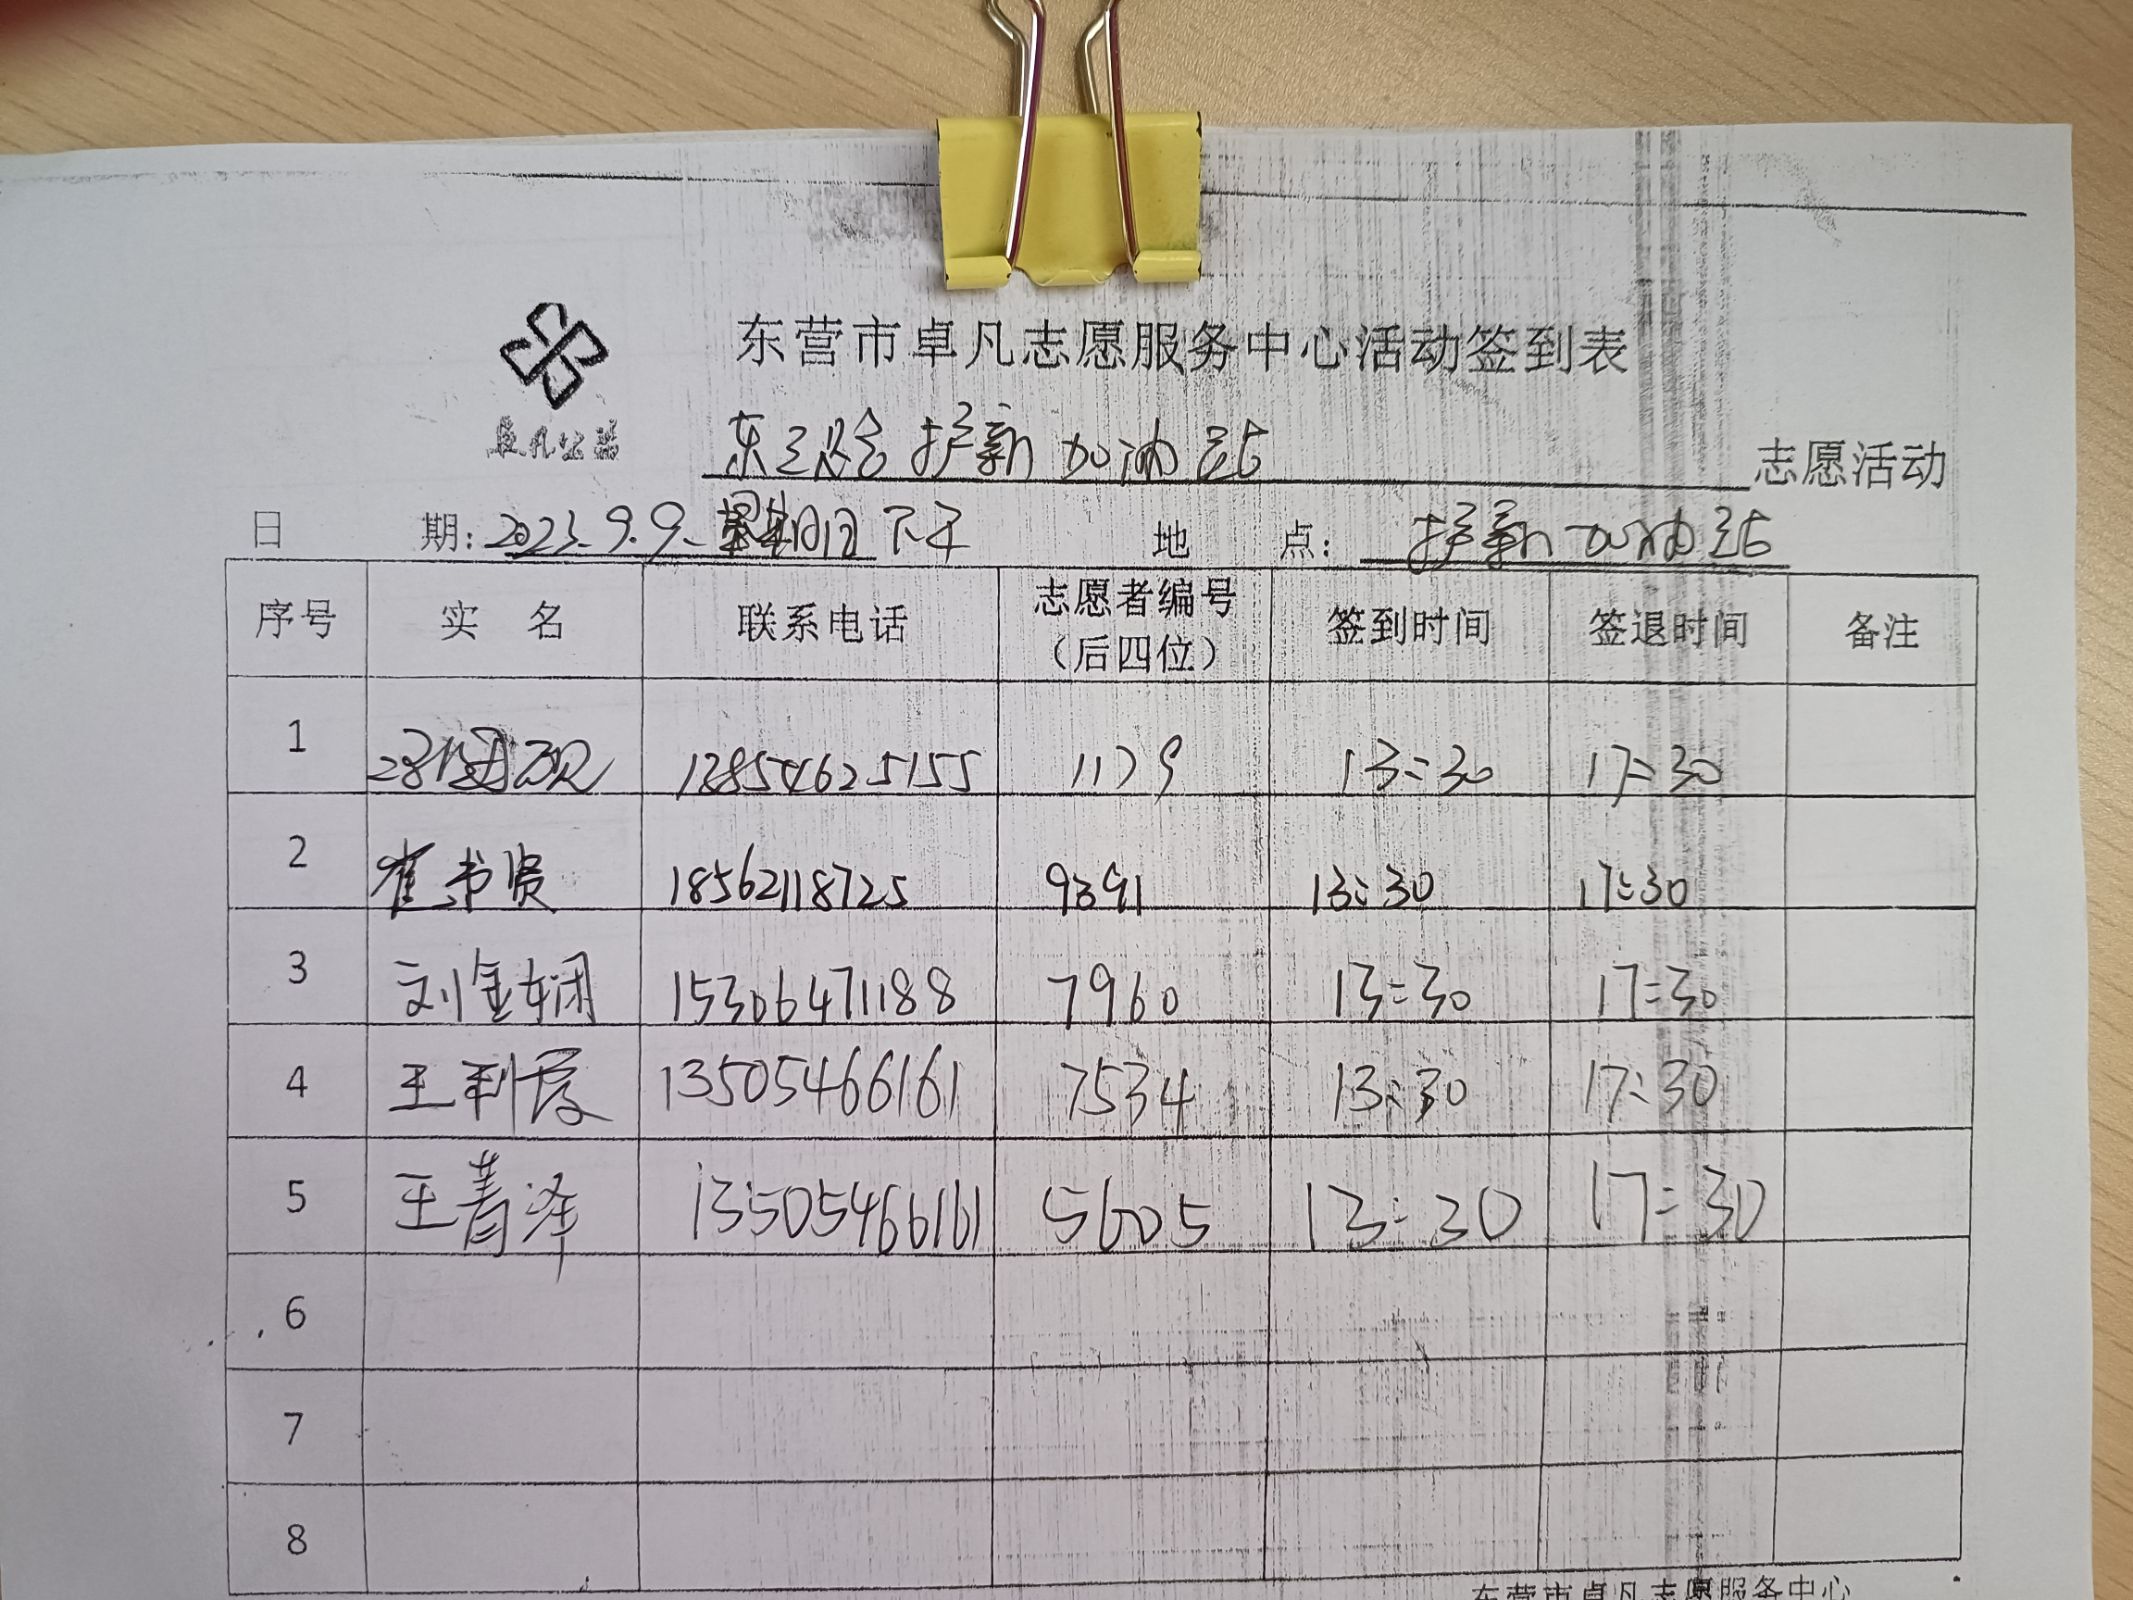 东营市卓凡志愿服务中心活动签到表
卓凡公益
东三路护新加油站 志愿活动
日 期: 2023.9.9. 星期日下午 地 点: 护新加油站
序号 实 名 联系电话 志愿者编号（后四位） 签到时间 签退时间 备注
1 13854625155 1179 13:30 17:30
2 崔书贤 18562118725 9391 13:30 17:30
3 刘金娴 15306471188 7960 13:30 17:30
4 王利霞 13505466161 7534 13:30 17:30
5 王菁泽 13505466161 5605 13:30 17:30
6
7
8
东营市卓凡志愿服务中心